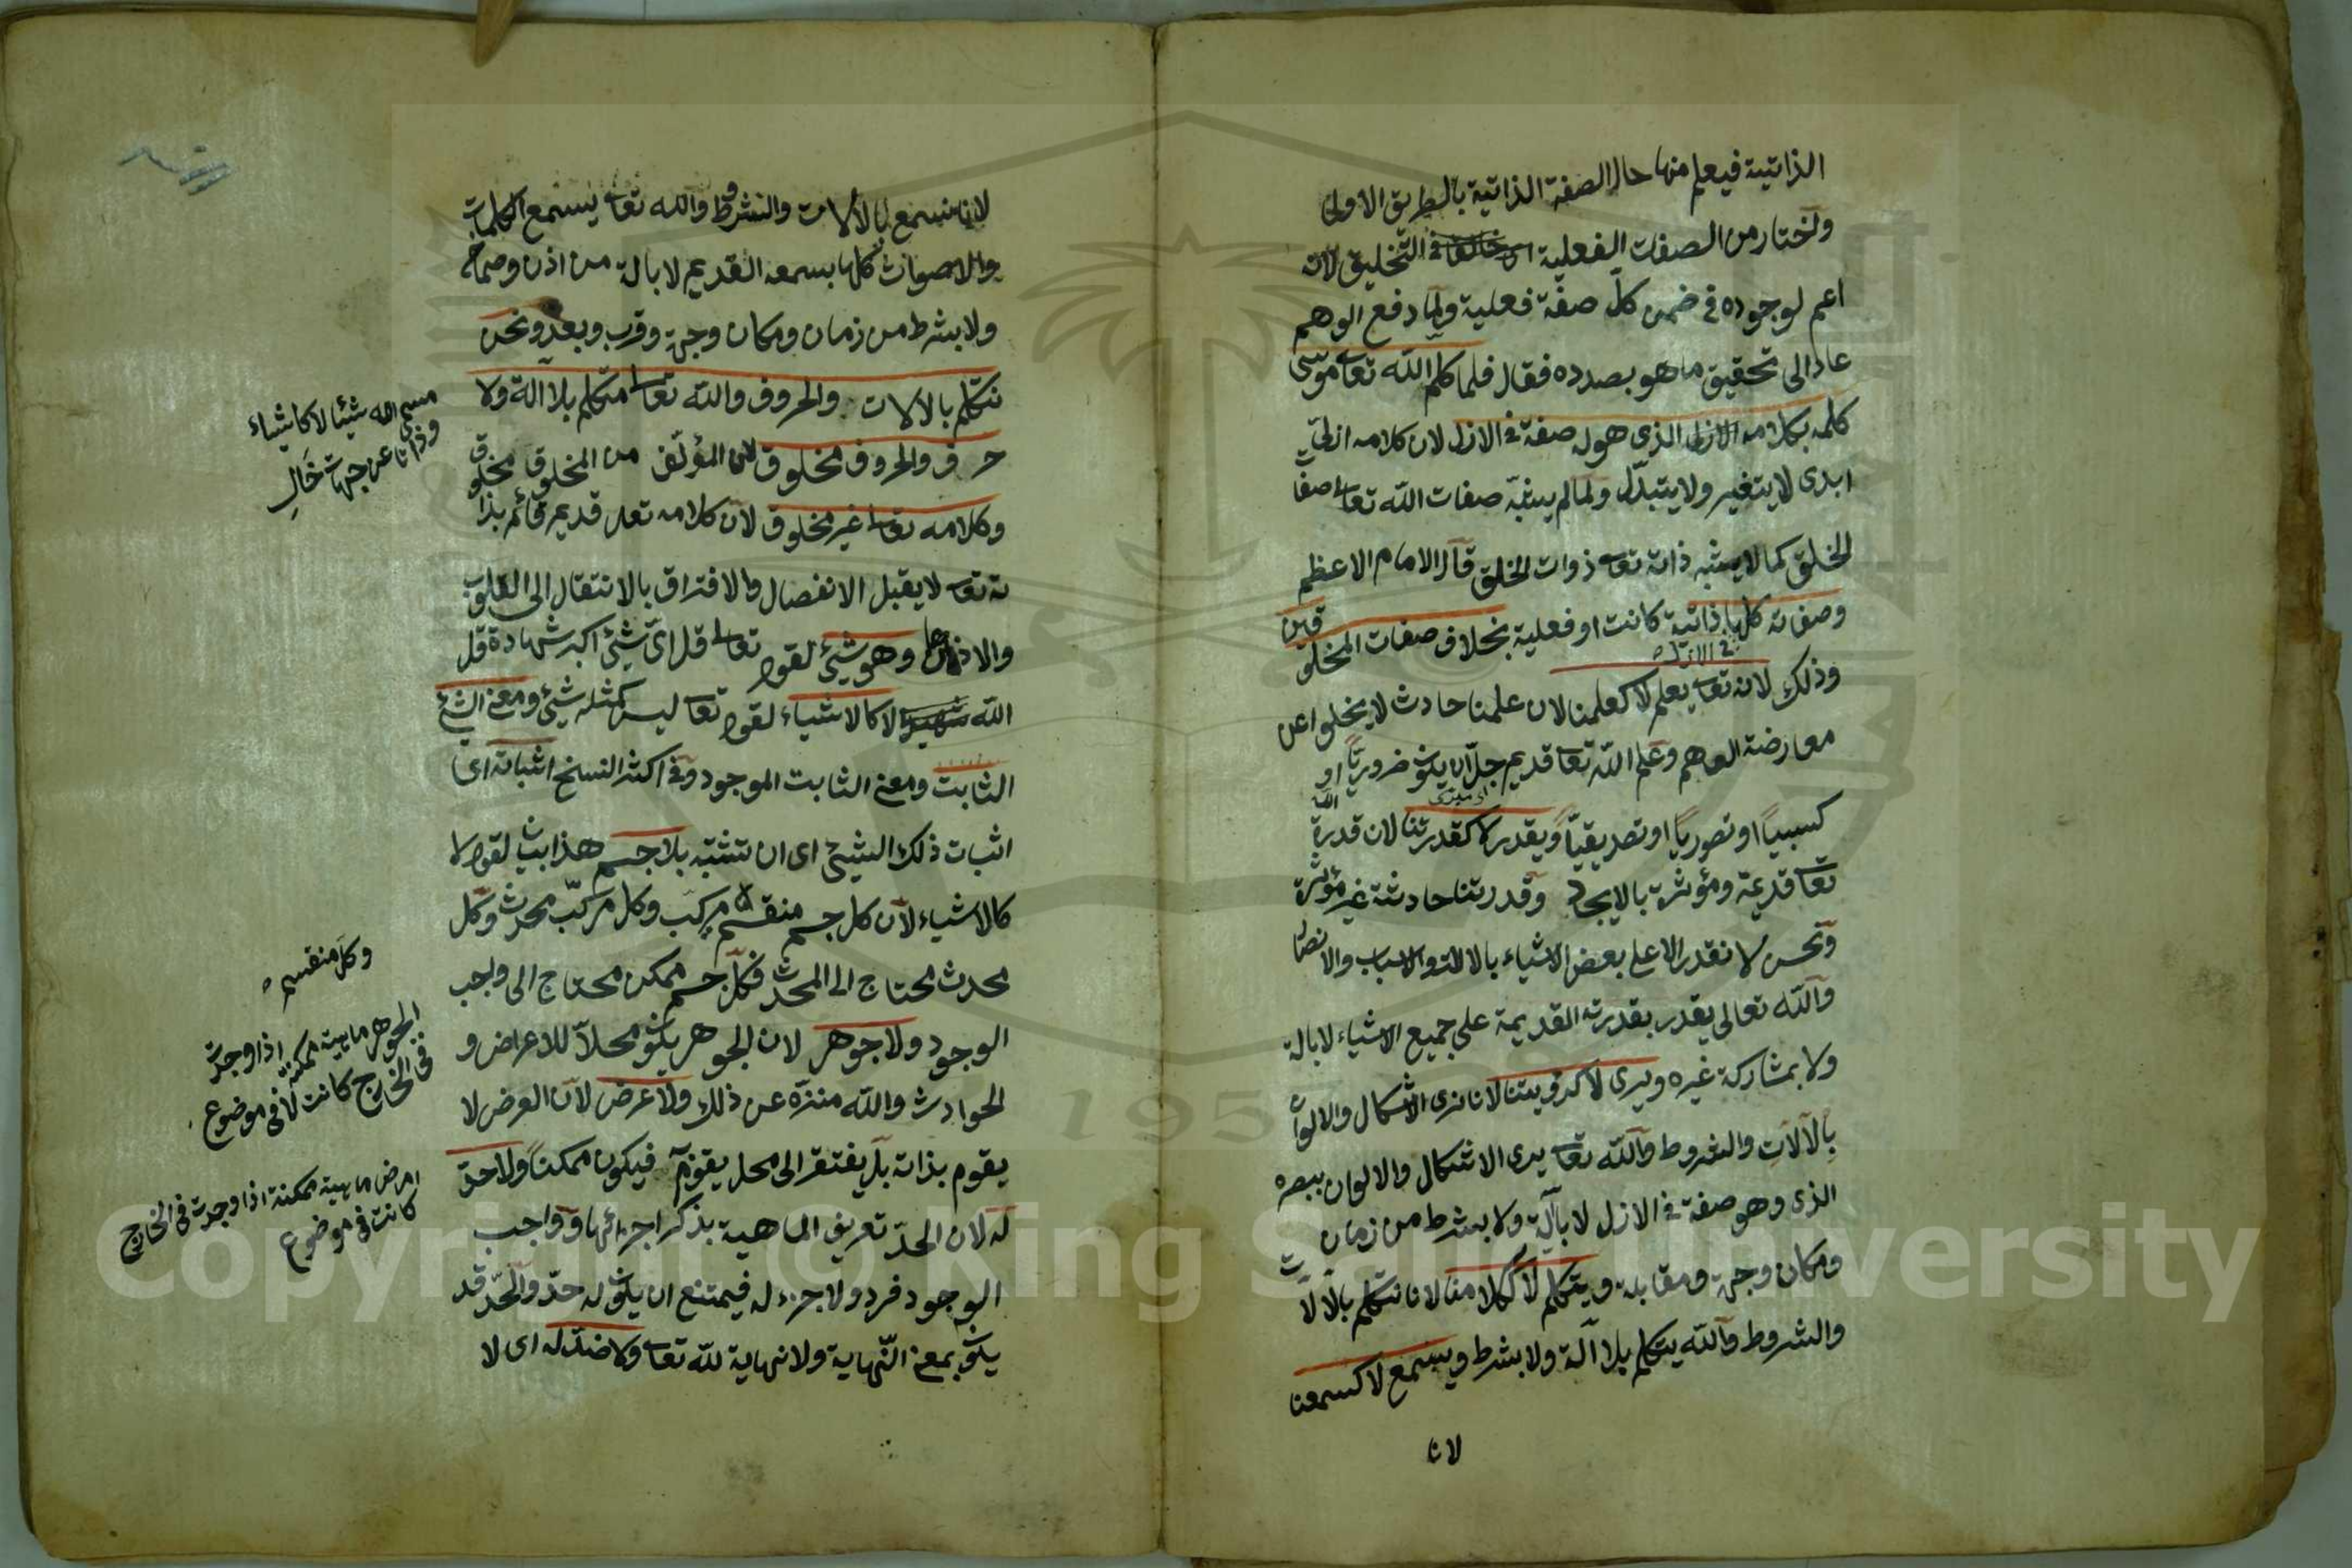 الذاتية فيعلم منها حال الصفة الذاتية بالطريق الاولى
واختار من الصفات الفعلية التخليق لانه
اعم لوجوده في ضمن كلّ صفة فعلية ولما دفع الوهم
عاد الى تحقيق ما هو بصدده فقال فلما كلم الله تعا موسى
كلمه بكلامه الازلى الذى هو له صفة في الازل لان كلامه ازليّ
ابدى لا يتغير ولا يتبدّل ولما لم يشبه صفات الله تعا صفا
الخلق كما لا يشبه ذاته تعا ذوات الخلق قال الامام الاعظم
وصفاته كلها ذاتية كانت او فعلية بخلاف صفات المخلو
قين
في الازل
وذلك لانه تعا يعلم لا كعلمنا لان علمنا حادث لا يخلوا عن
معارضة الوهم وعلم الله تعا قديم جلّ ان يكون ضروريّاً او
كسبيّاً او تصوريّاً او تصديقيّاً ويقدر لا كقدرتنا لان قدرة
الله
تعا قديمة ومؤثرة بالايجاد وقدرتنا حادثة غير مؤثرة
ونحن لا نقدر الا على بعض الاشياء بالالات والاسباب والانصا
والله تعالى يقدر بقدرته القديمة على جميع الاشياء لا بالة
ولا بمشاركة غيره ويرى لا كرؤيتنا لانا نرى الاشكال والالوان
بالآلات والشروط والله تعا يرى الاشكال والالوان ببصره
الذى وهو صفة في الازل لا بآلة ولا بشرط من زمان
ومكان وجهة ومقابلة ويتكلم لا ككلامنا لانا نتكلم بالالا
ت
والشروط والله يتكلم بلا آلة ولا بشرط ويسمع لا كسمعنا
لانا
لانا نسمع بالالات والشروط والله تعا يسمع الكلمات
والاصوات كلها بسمعه القديم لا بالة من اذن وصماخ
ولا بشرط من زمان ومكان وجهة وقرب وبعد ونحن
نتكلم بالالات والحروف والله تعا متكلم بلا آلة ولا
حرف والحروف مخلوق لان المؤلّف من المخلوق مخلوق
وكلامه تعا غير مخلوق لان كلامه تعا قديم قائم بذا
ته تعا لا يقبل الانفصال والافتراق بالانتقال الى القلوب
والاذان وهو شيئ لقوله تعا قل اىّ شيئ اكبر شهادة قل
الله شهيد لا كالاشياء لقوله تعا ليس كمثله شيئ ومعنى الشيئ
الثابت ومعنى الثابت الموجود وفي اكثر النسخ اثباته اى
اثبات ذلك الشيئ اى ان تثبته بلا جسم هذا بيان لقوله لا
كالاشياء لان كل جسم منقسم مركب وكل مركّب محدث وكل
محدث محتاج الى المحدث فكلّ جسم ممكن محتاج الى واجب
الوجود ولا جوهر لان الجوهر يكون محلاّ للاعراض و
الحوادث والله منزّه عن ذلك ولا عرض لان العرض لا
يقوم بذاته بل يفتقر الى محل يقوّمه فيكون ممكناً ولا حدّ
له لان الحدّ تعريف الماهية بذكر اجزائها وواجب
الوجود فرد ولا جزء له فيمتنع ان يكون له حدّ والحدّ قد
يكون بمعنى النّهاية ولا نهاية لله تعا ولا ضدّ له اى لا
مسمى الله شيئا لا كاشياء
وذاتا عن جهات خَالِ
وكل منقسم
الجوهر ماهية ممكنة اذا وجدت
في الخارج كانت لا في موضوع
ماهية ممكنة اذا وجدت في الخارج
كانت في موضوع
Copyright © King Saud University